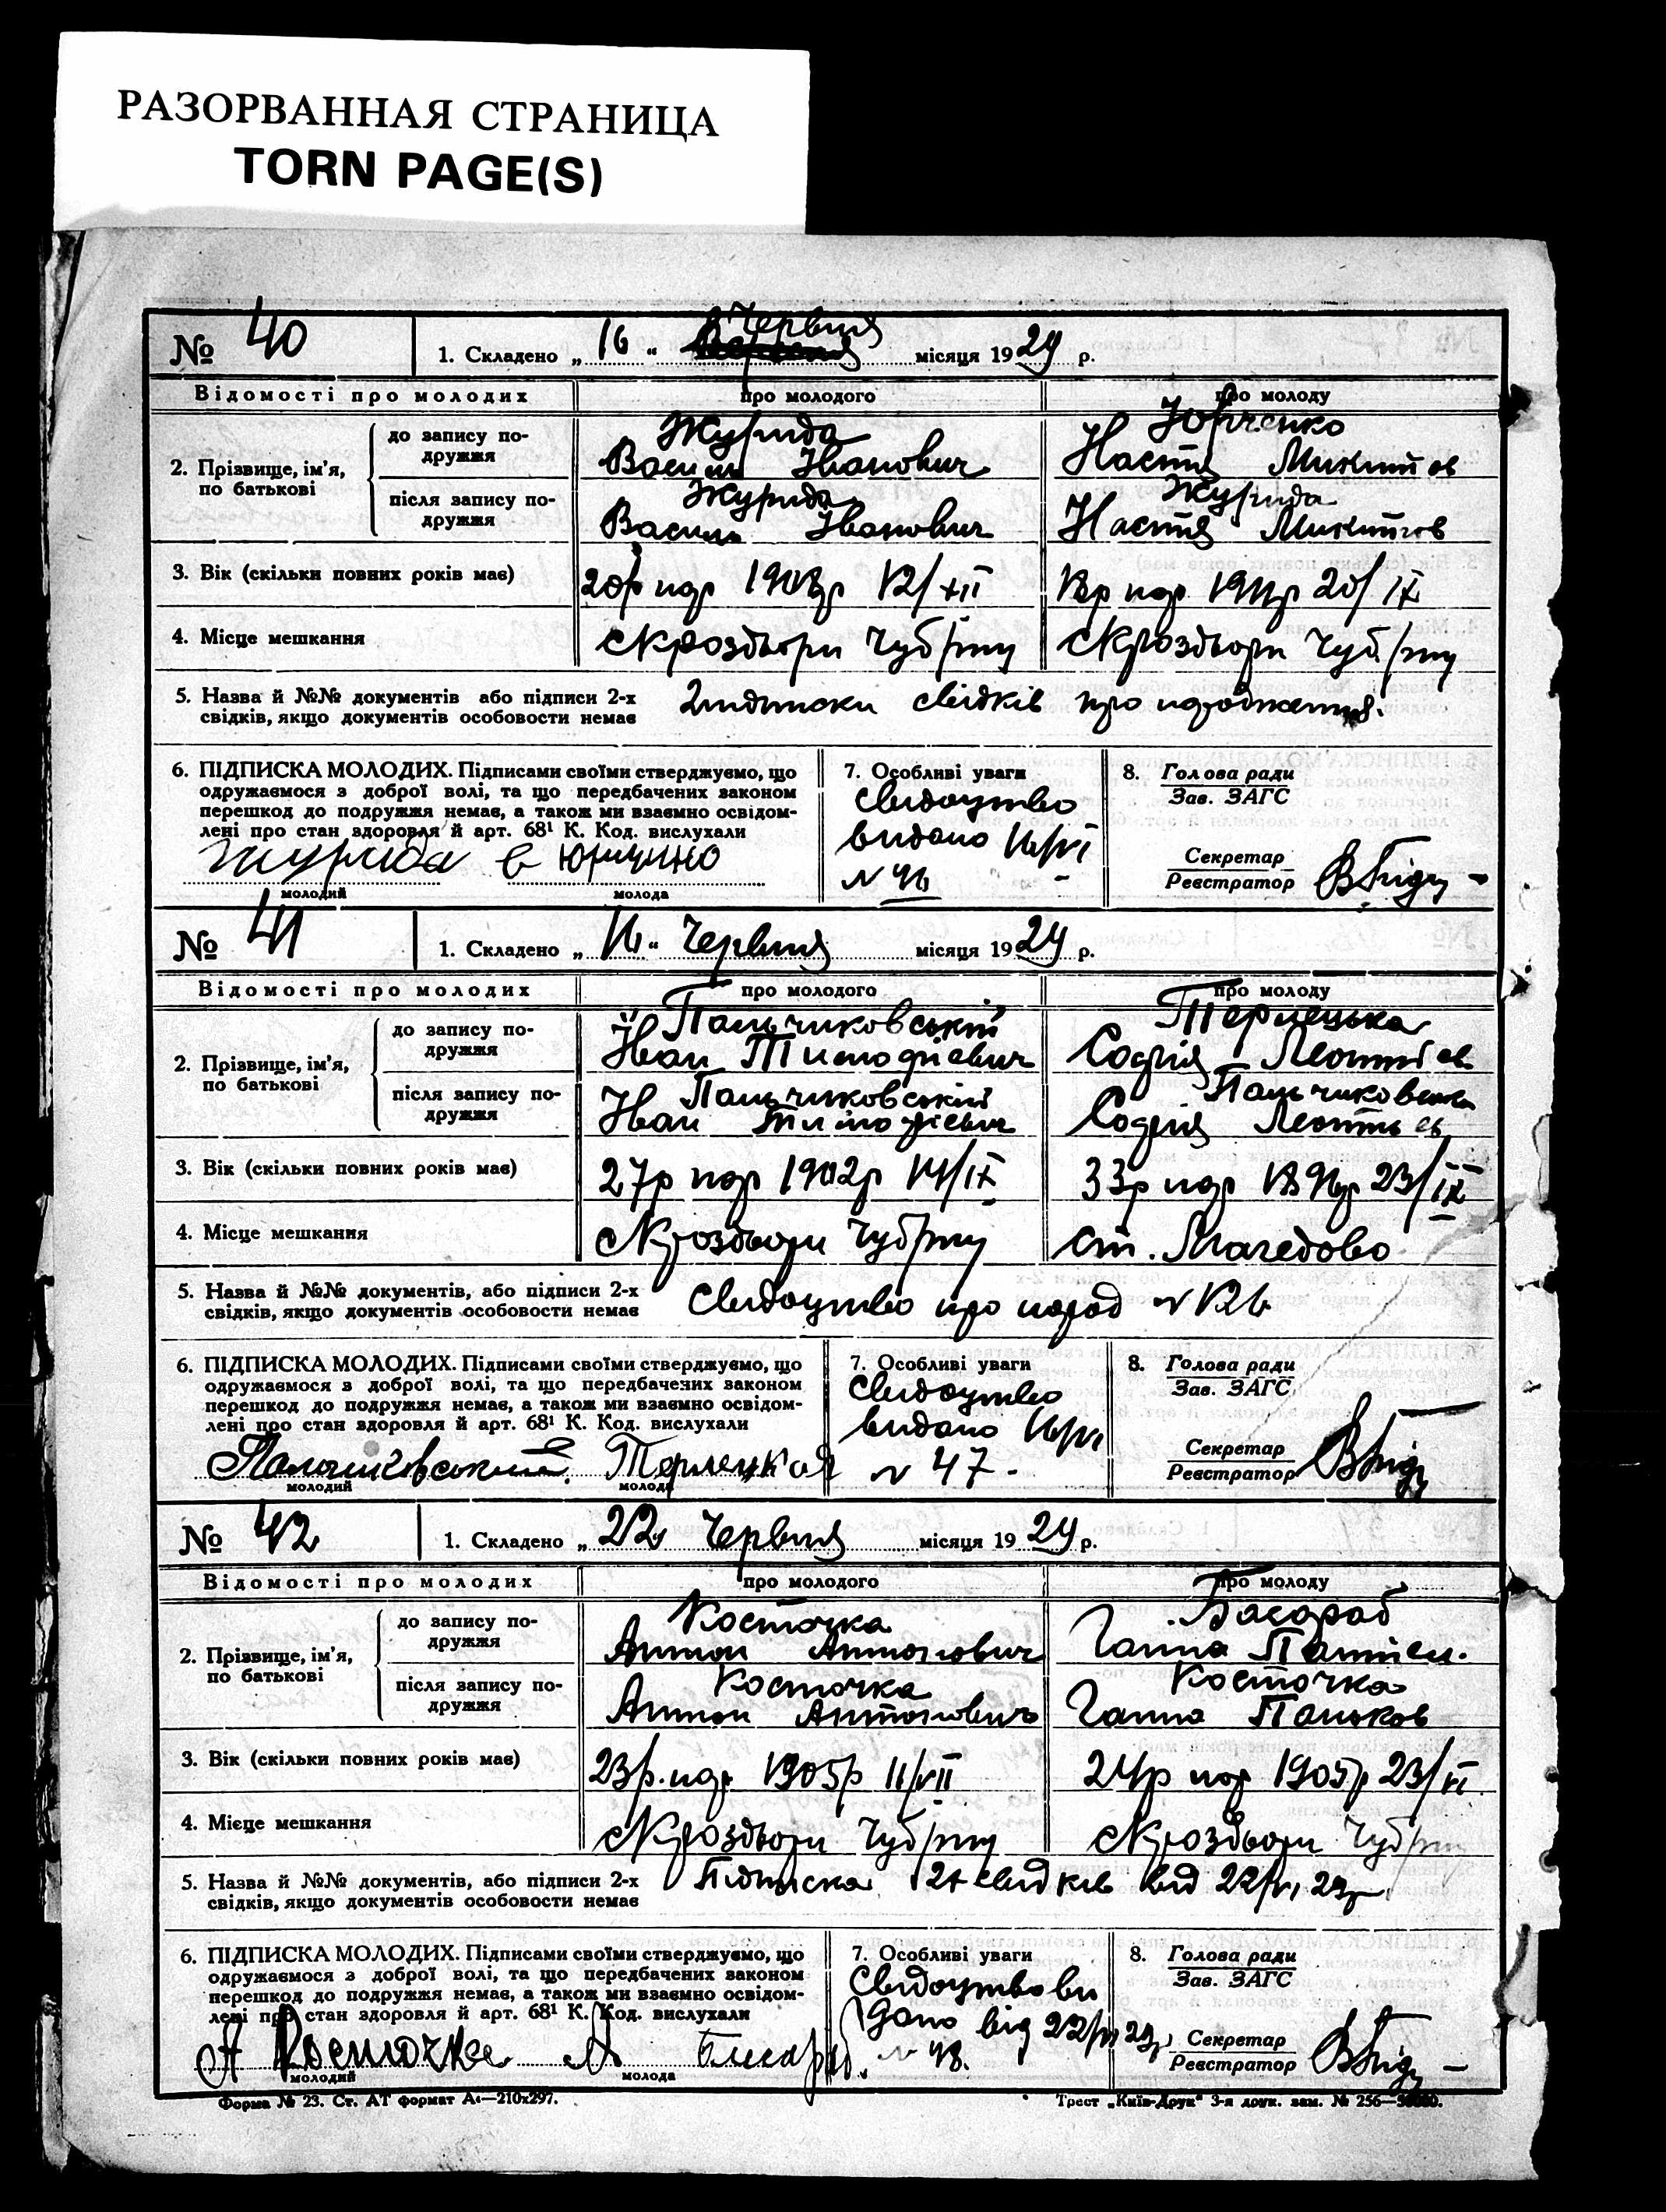 РАЗОРВАННАЯ СТРАНИЦА
TORN PAGE(S)
№ 40 1. Складено „ 16 “ Червня місяця 1929 р.
Відомості про молодих про молодого про молоду
2. Прізвище, ім’я, по батькові
до запису подружжя Журида Василь Іванович Юрченко Настя Микитов
після запису подружжя Журида Василь Іванович Журида Настя Микитов
3. Вік (скільки повних років має) 20р нар 1908р 12/XII 18р нар 1911р 20/IX
4. Місце мешкання Чуб р/ну Чуб р/ну
5. Назва й №№ документів або підписи 2-х свідків про народження.
свідків, якщо документів особовости немає
6. ПІДПИСКА МОЛОДИХ. Підписами своїми стверджуємо, що
одружаємося з доброї волі, та що передбачених законом
перешкод до подружжя немає, а також ми взаємно освідом-
лені про стан здоровля й арт. 68¹ К. Код. вислухали
Журида
молодий молода
7. Особливі уваги
Свидоцтво
видано 16/VI
N 46
8. Голова ради
Зав. ЗАГС
Секретар
Реєстратор
№ 41 1. Складено „ 16 “ Червня місяця 1929 р.
Відомості про молодих про молодого про молоду
2. Прізвище, ім’я, по батькові
до запису подружжя Пальчиковський Іван Тимофієвич Терлецька Софія Леонтіев
після запису подружжя Пальчиковський Іван Тимофієвич Пальчиковська Софія Леонтьев
3. Вік (скільки повних років має) 27р нар 1902р 14/IX 33р нар 1896р 23/IX
4. Місце мешкання Чуб р/ну ст.
5. Назва й №№ документів, або підписи 2-х Свидоцтво про народ N 126
свідків, якщо документів особовости немає
6. ПІДПИСКА МОЛОДИХ. Підписами своїми стверджуємо, що
одружаємося з доброї волі, та що передбачених законом
перешкод до подружжя немає, а також ми взаємно освідом-
лені про стан здоровля й арт. 68¹ К. Код. вислухали
Пальчиковський. Терлецкая
молодий молода
7. Особливі уваги
Свидоцтво
видано 16/VI
N 47 -
8. Голова ради
Зав. ЗАГС
Секретар
Реєстратор
№ 42 1. Складено „ 22 “ Червня місяця 1929 р.
Відомості про молодих про молодого про молоду
2. Прізвище, ім’я, по батькові
до запису подружжя Косточка Антон Антонович Басараб Ганна
після запису подружжя Косточка Антон Антонович Косточка Ганна Паньков
3. Вік (скільки повних років має) 23р. нар 1905р 11/VII 24р нар 1905р 23/VI
4. Місце мешкання Чуб р/ну Чуб р/ну
5. Назва й №№ документів, або підписи 2-х Підписка 2х свидків від 22/VI 29р
свідків, якщо документів особовости немає
6. ПІДПИСКА МОЛОДИХ. Підписами своїми стверджуємо, що
одружаємося з доброї волі, та що передбачених законом
перешкод до подружжя немає, а також ми взаємно освідом-
лені про стан здоровля й арт. 68¹ К. Код. вислухали
А Косточка
молодий молода
7. Особливі уваги
Свидоцтво ви
дано від 22/VI 29р
N 48.
8. Голова ради
Зав. ЗАГС
Секретар
Реєстратор
Форма № 23. Ст. АТ формат А₄—210x297. Трест „Київ-Друк“ 3-я друк. зам. № 256—